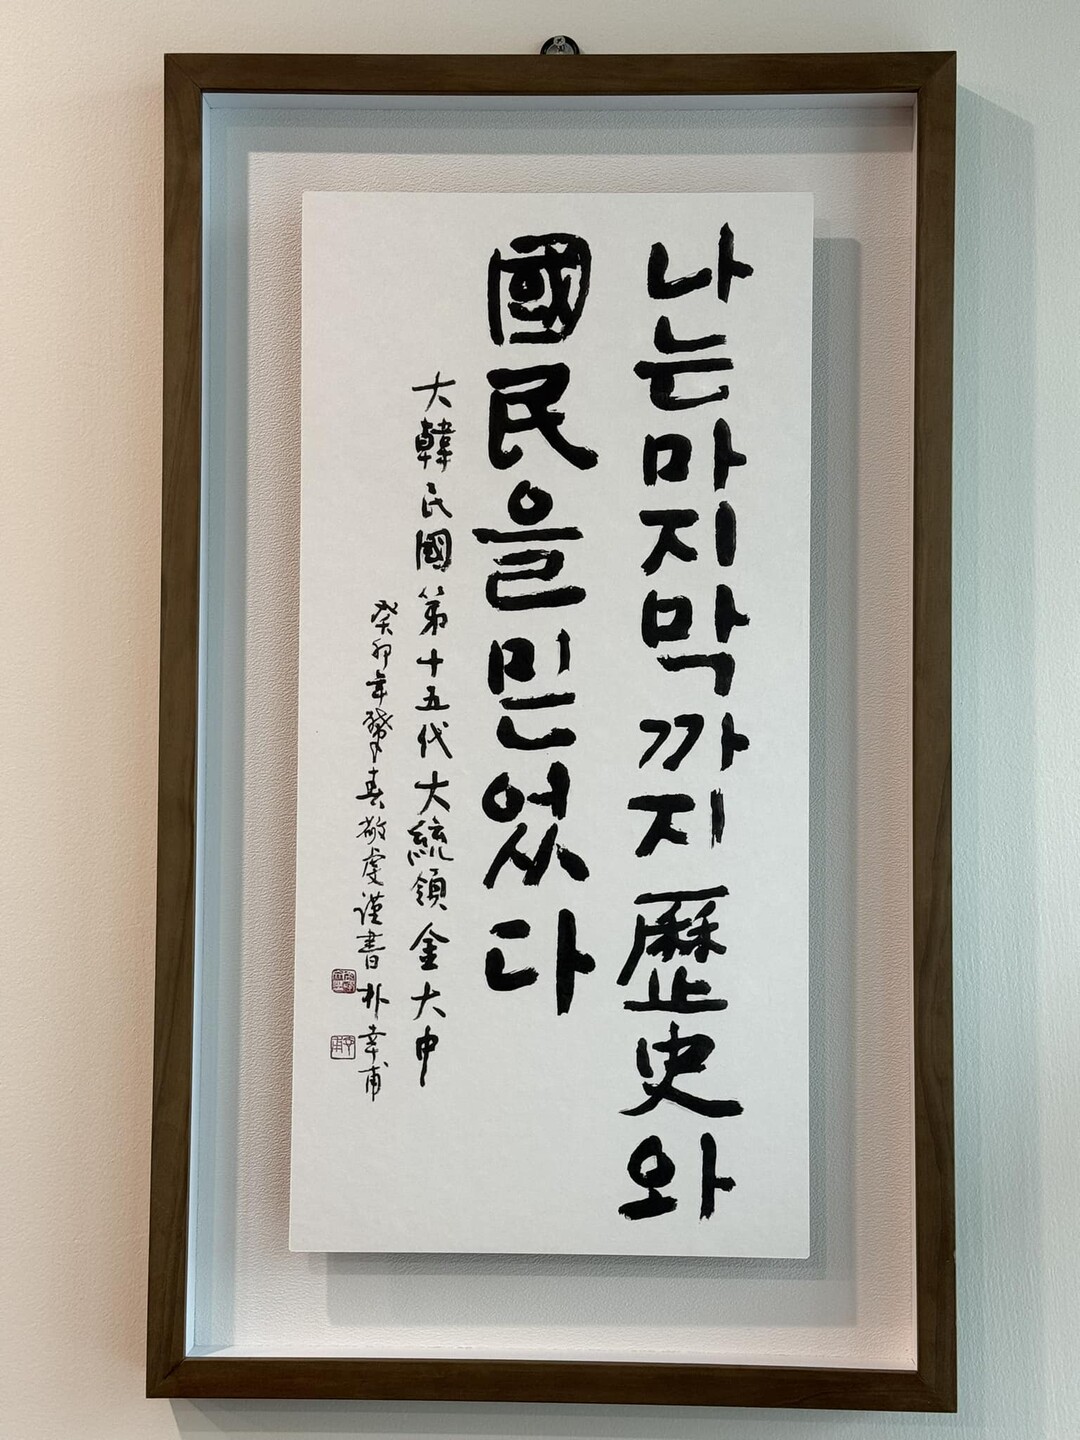 나는마지막까지歷史와
國民을믿었다
大韓民國第十五代大統領金大中
癸卯年肇春敬虔謹書朴幸甫